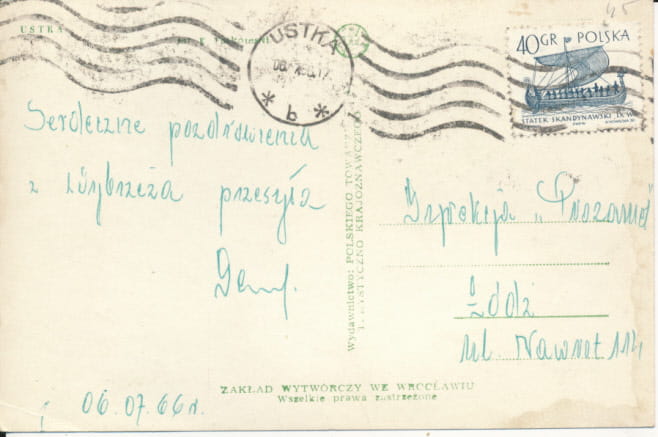 USTKA
USTKA
06.7.66.17
* b *
40 GR POLSKA
STATEK SKANDYNAWSKI IX W.
Serdeczne pozdrowienia
z wybrzeża przesyła
Wydawnictwo: POLSKIEGO TOWARZ
TURYSTYCZNO KRAJOZNAWCZEGO
„Prozamet"
Łódź
ul. Nawrot 114
ZAKŁAD WYTWÓRCZY WE WROCŁAWIU
Wszelkie prawa zastrzeżone
06.07.66r.